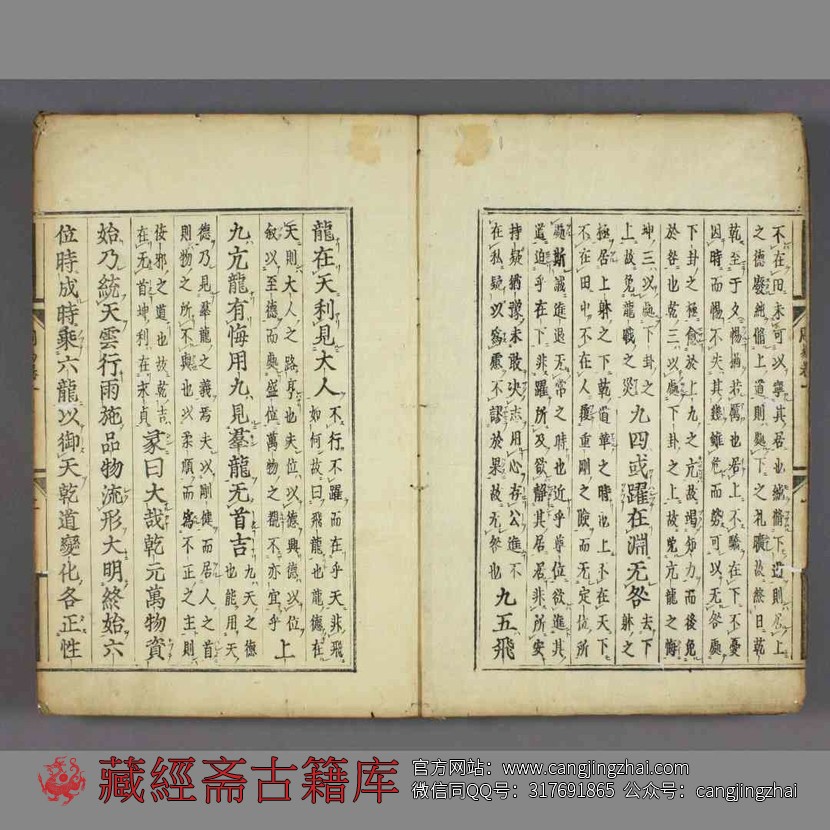 不在田未可以寧其居也純脩下道則居上
之德廢純脩上道則處下之礼曠故終日乾
乾至于夕惕猶若厲也居上不驕在下不憂
因時而惕不失其幾雖危而勞可以无咎處
下卦之極愈於上九之亢故竭知力而後免
於咎也乾三以處下卦之上故免亢龍之悔
坤三以處下卦之
上故免龍戰之災
九四或躍在淵无咎
去下
躰之
極居上躰之下乾道革之時也上不在天下
不在田中不在人履重剛之險而无定位所
處斯誠進退无常之時也近乎尊位欲進其
道迫乎在下非躍所及欲靜其居居非所安
持疑猶豫未敢決志用心存公進不
在私疑以為慮不謬於果故无咎也
九五飛
龍在天利見大人
不行不躍而在乎天非飛
如何故曰飛龍也龍德在
天則大人之路亨也夫位以德興德以位
叙以至德而處盛位萬物之覩不亦宜乎
上
九亢龍有悔用九見羣龍无首吉
九天之德
也能用天
德乃見羣龍之義焉夫以剛健而居人之首
則物之所不與也以柔順而為不正之主則
佞邪之道也故乾吉
在无首坤利在永貞
彖曰大哉乾元萬物資
始乃統天雲行雨施品物流形大明終始六
位時成時乘六龍以御天乾道變化各正性
藏經斋古籍库
官方网站：www.cangjingzhai.com
微信同QQ号：317691865 公众号：cangjingzhai